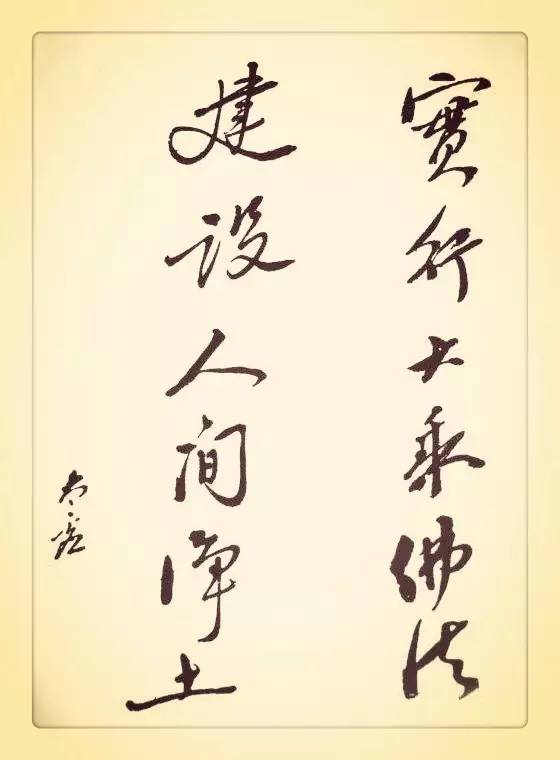 實行大乘佛法
建设人间淨土
太虛